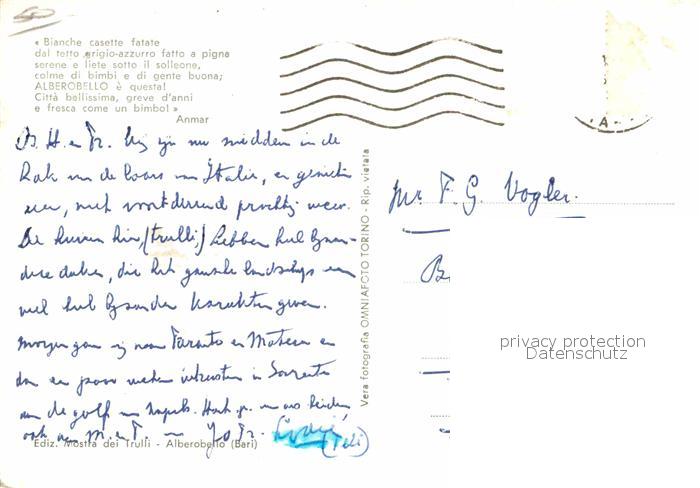 « Bianche casette fatate
dal tetto grigio-azzurro fatto a pigna
serene e liete sotto il solleone,
colme di bimbi e di gente buona;
ALBEROBELLO è questa!
Città bellissima, greve d'anni
e fresca come un bimbo! »
Anmar
H. en Fr. Wij zijn nu midden in de
van de laars van Italië, en genieten
zeer, met voortdurend prachtig weer.
De huizen hier (trulli) hebben heel bijzon-
dere daken, die het gansche landschap een
heel bijzonder karakter geven.
Morgen gaan wij naar Taranto en Matera en
dan een paar weken uitrusten in Sorrento
aan de golf van Napels. Hart. gr. van ons beiden
ook aan M. en T.
(Teli)
Ediz. Mostra dei Trulli - Alberobello (Bari)
Vera fotografia OMNIAFOTO TORINO - Rip. vietata
-A-
Mr. F. G. Vogler.
privacy protection
Datenschutz